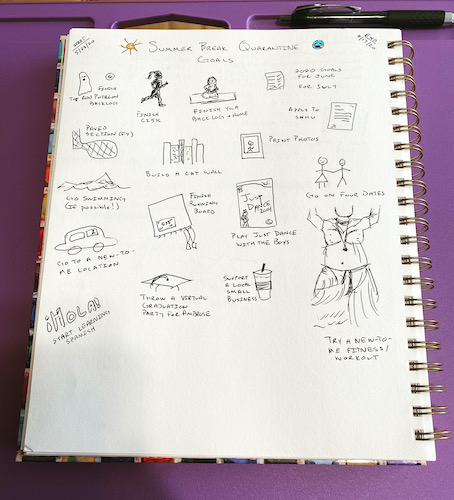 SUMMER BREAK QUARANTINE
GOALS
FINISH
THE RUN PATREON
BACKLOG
FINISH
C25K
FINISH YWA
BACKLOG + HOME
2020 GOALS
FOR JUNE
FOR JULY
APPLY TO
SNHU
PAVED
SECTION (FY)
BUILD A CAT WALL
PRINT PHOTOS
GO SWIMMING
(IF POSSIBLE!)
FINISH
RUNNING
BOARD
JUST
DANCE
PLAY JUST DANCE
WITH THE BOYS
GO ON FOUR DATES
GO TO A NEW-TO-
ME LOCATION
THROW A VIRTUAL
GRADUATION
PARTY FOR AMBROSE
SUPPORT
A LOCAL
SMALL
BUSINESS
¡HOLA!
START LEARNING
SPANISH
TRY A NEW-TO-
ME FITNESS/
WORKOUT